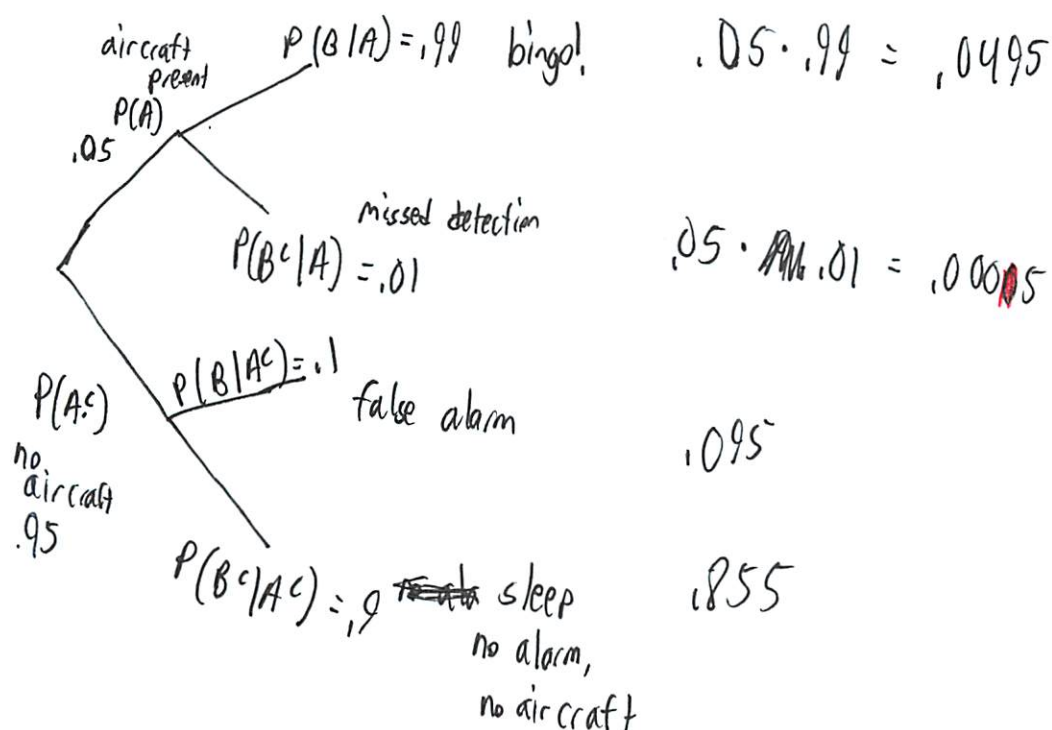 aircraft present
P(A)
.05
P(B|A) = .99 bingo!
.05 · .99 = .0495
missed detection
P(Bᶜ|A) = .01
.05 · .01 = .0005
P(Aᶜ)
no
aircraft
.95
P(B|Aᶜ) = .1
false alarm
.095
P(Bᶜ|Aᶜ) = .9 sleep
no alarm,
no aircraft
.855